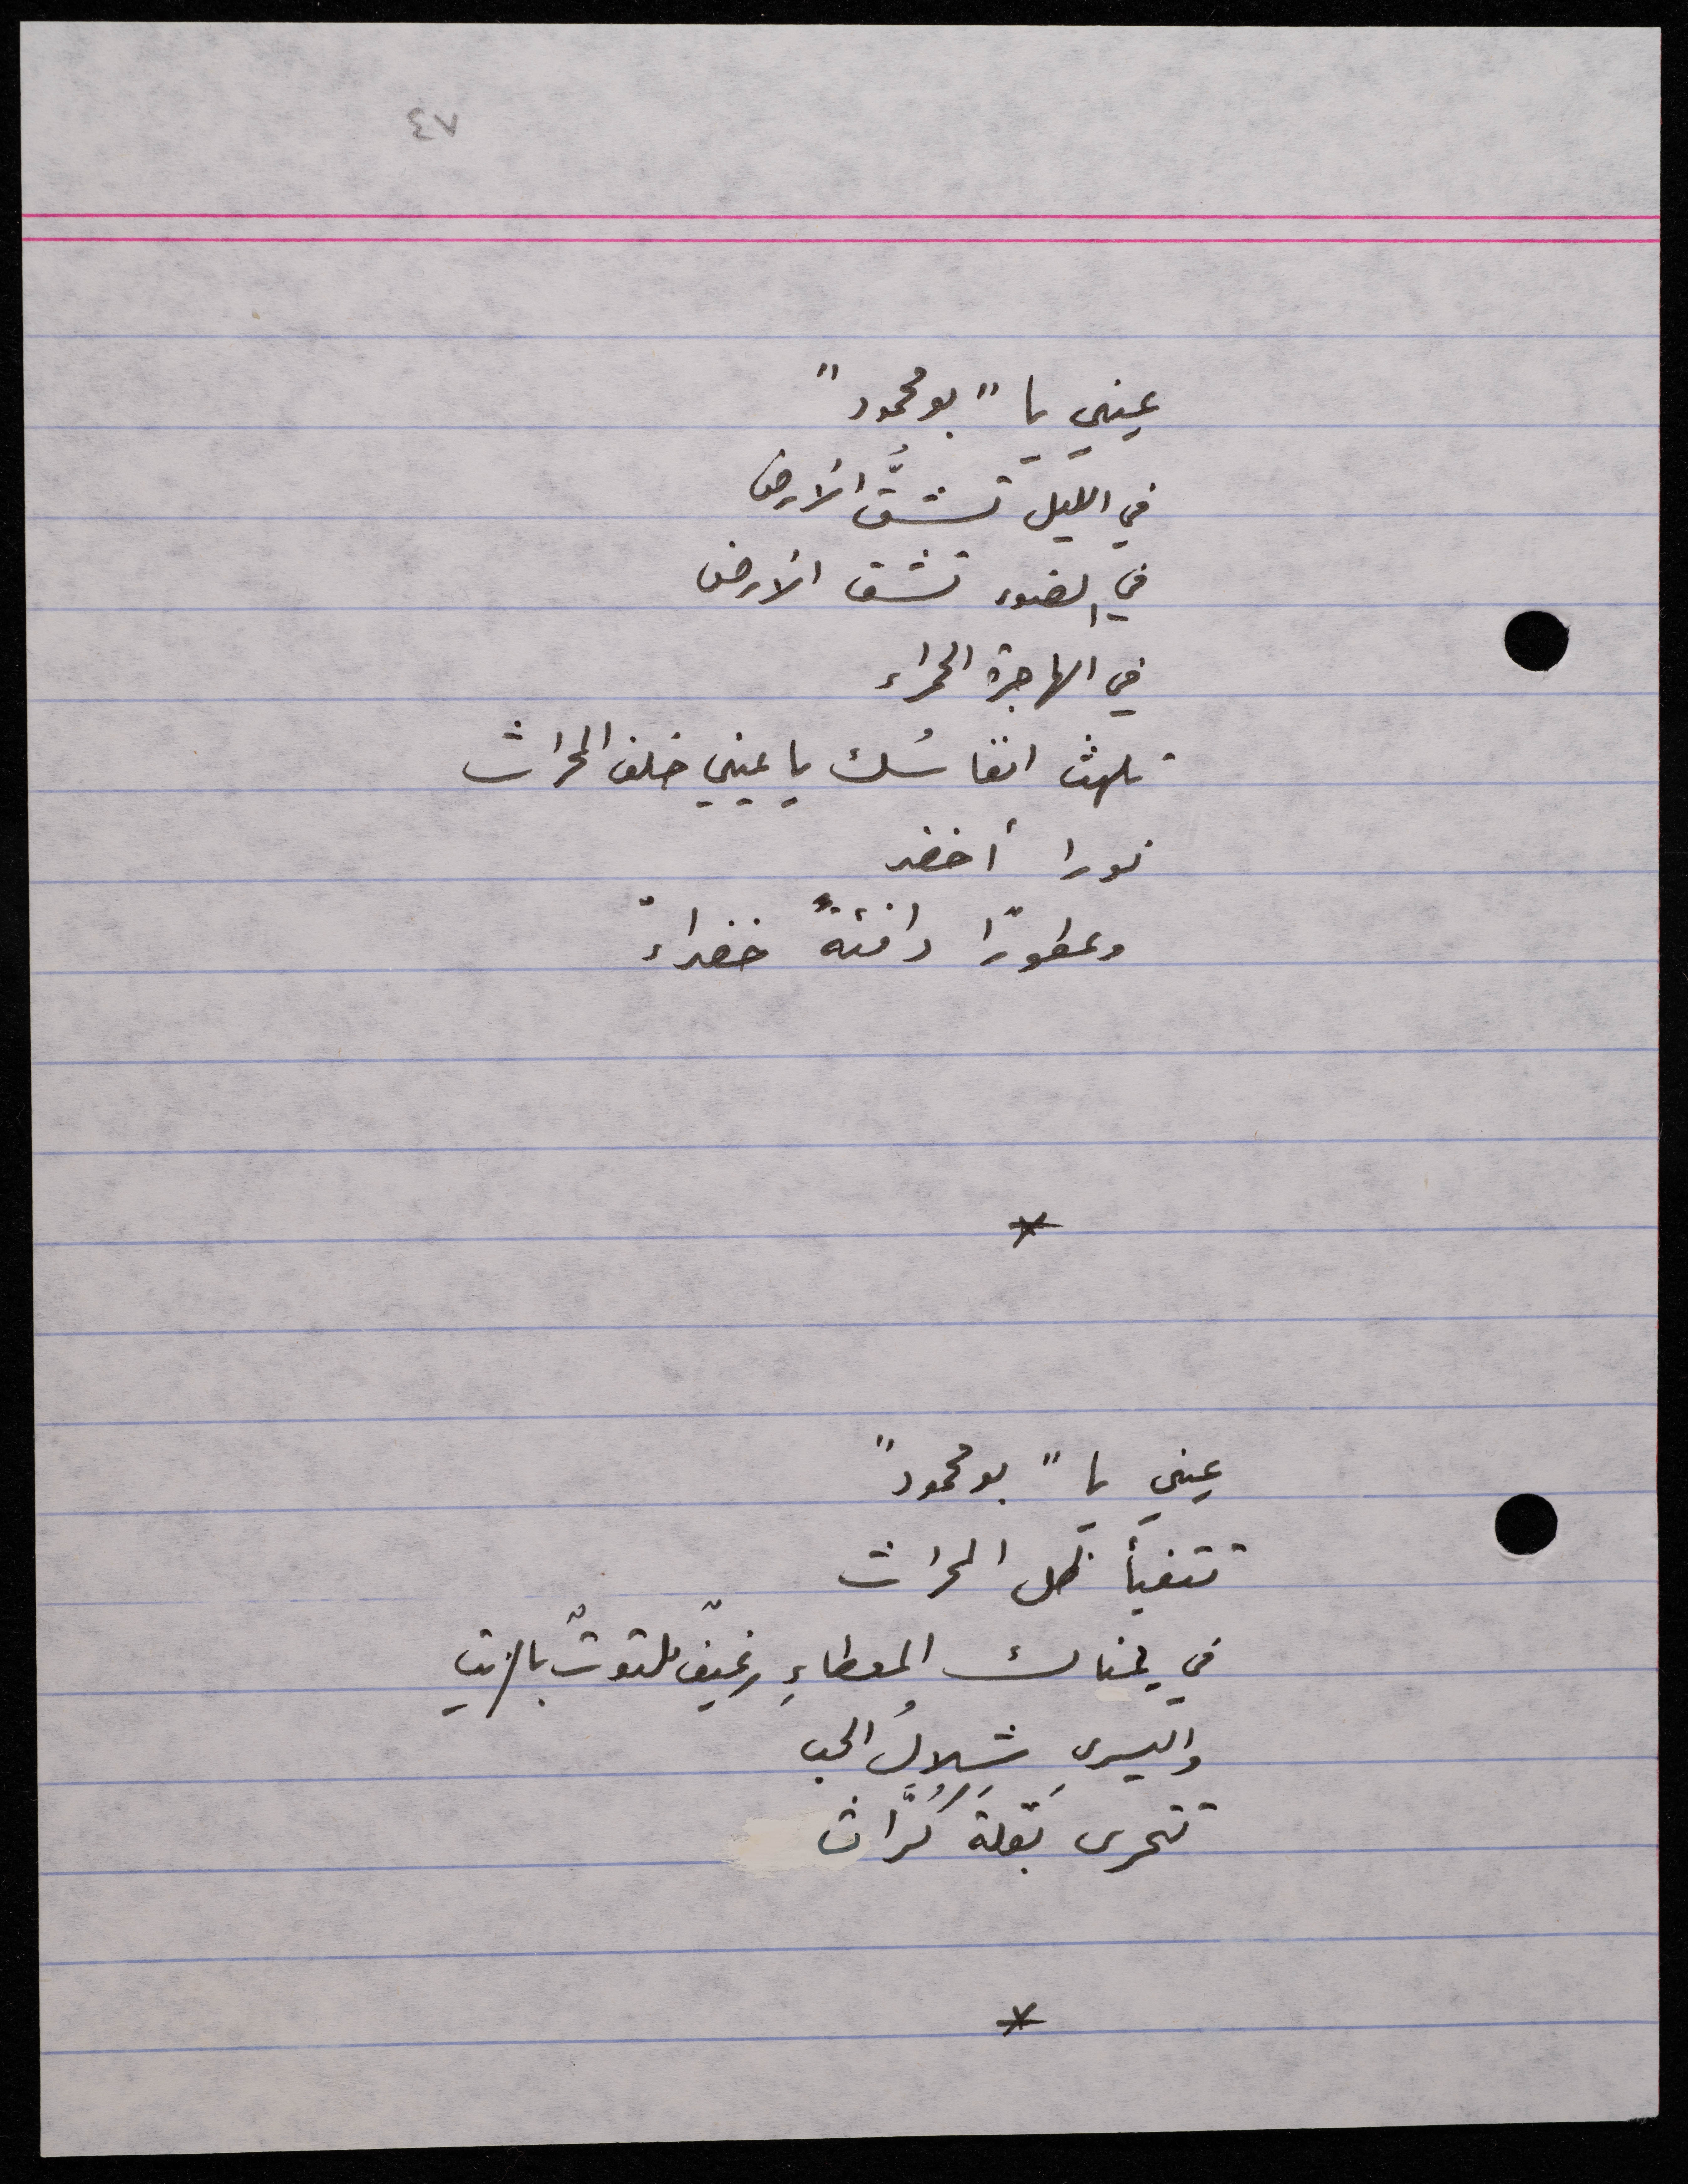 ٤٧
عيني يا "بو محمود"
في الليل تشقُّ الأرض
في الضوء تشق الأرض
في الهاجرة الحمراء
تلهث انفاسُك يا عيني خلف المحراث
نورا أخضر
وعطورًا دافئةً خضراءً
*
عيني يا "بو محمود"
تتفيأ ظل المحراث
في يمناك المعطاءِ رغيفٌ ملتوتٌ بالزيت
واليسرى شلالُ الحب
تتحرى بَقلةَ كُرَّاث
*